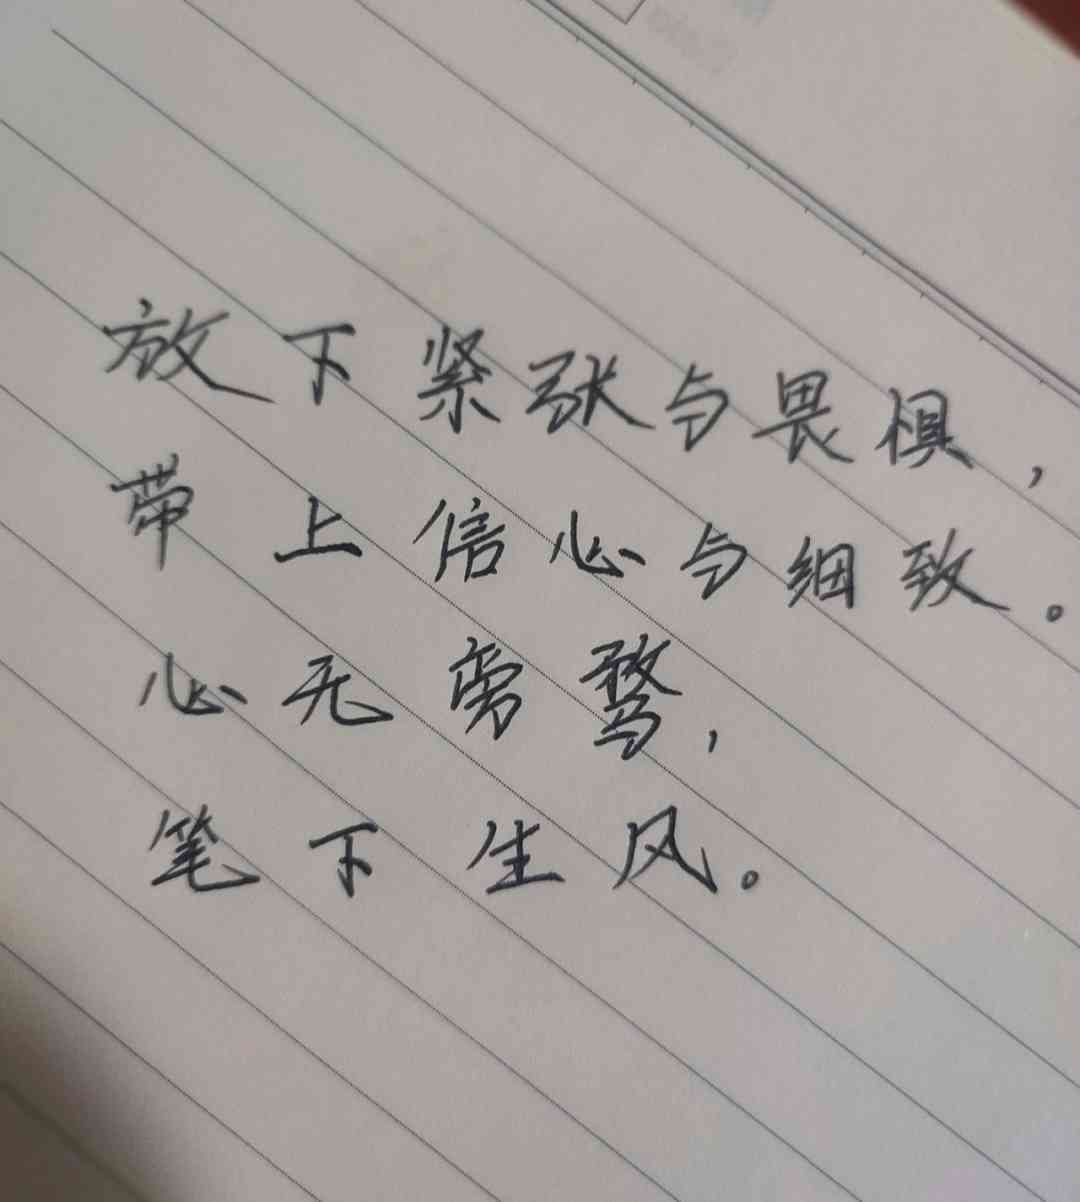 放下紧张与畏惧，
带上信心与细致。
心无旁鹜，
笔下生风。